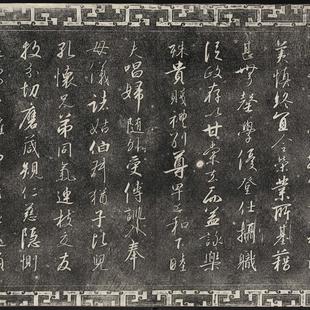 美慎終宜令榮業所基藉
甚無竟學優登仕攝職
從政存以甘棠去而益詠樂
殊貴賤禮別尊卑上和下睦
夫唱婦隨外受傅訓入奉
母儀諸姑伯叔猶子比兒
孔懷兄弟同氣連枝交友
投分切磨箴規仁慈隱惻